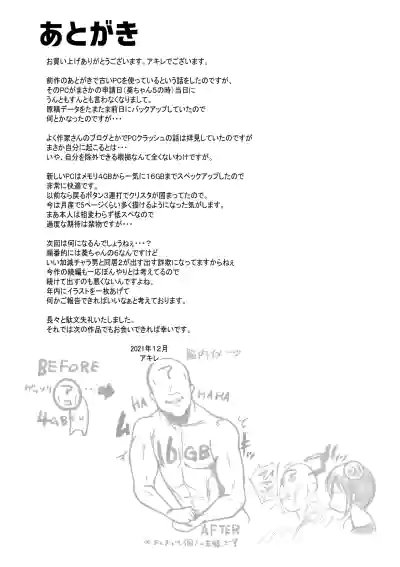 あとがき
お買い上げありがとうございます。アキレでございます。
前作のあとがきで古いPCを使っているという話をしたのですが、
そのPCがまさかの申請日(葵ちゃん5の時)当日に
うんともすんとも言わなくなりまして。
原稿データをたまたま前日にバックアップしていたので
何とかなったのですが・・・
よく作家さんのブログとかでPCクラッシュの話は拝見していたのですが
まさか自分に起こるとは・・・
いや、自分を除外できる根拠なんて全くないわけですが。
新しいPCはメモリ4GBから一気に16GBまでスペックアップしたので
非常に快適です。
以前なら戻るボタン3連打でクリスタが固まってたので。
今は月産で5ページくらい多く描けるようになった気がします。
まあ本人は相変わらず低スペなので
過度な期待は禁物ですが・・・
次回は何になるんでしょうねぇ・・・?
順番的には葵ちゃんの6なんですけど
いい加減チャラ男と同居2が出す出す詐欺になってますからねぇ
今作の続編も一応ぼんやりとは考えてるので
続けて出すのも悪くないんですよね。
年内にイラストを一枚あげて
何かご報告できればいいなぁと考えております。
長々と駄文失礼いたしました。
それでは次の作品でもお会いできれば幸いです。
2021年12月
アキレ
脳内イメージ
BEFORE
ゲッソリ
?
4GB
?
HA
HA
HAHA
ムキッ
16GB
AFTER